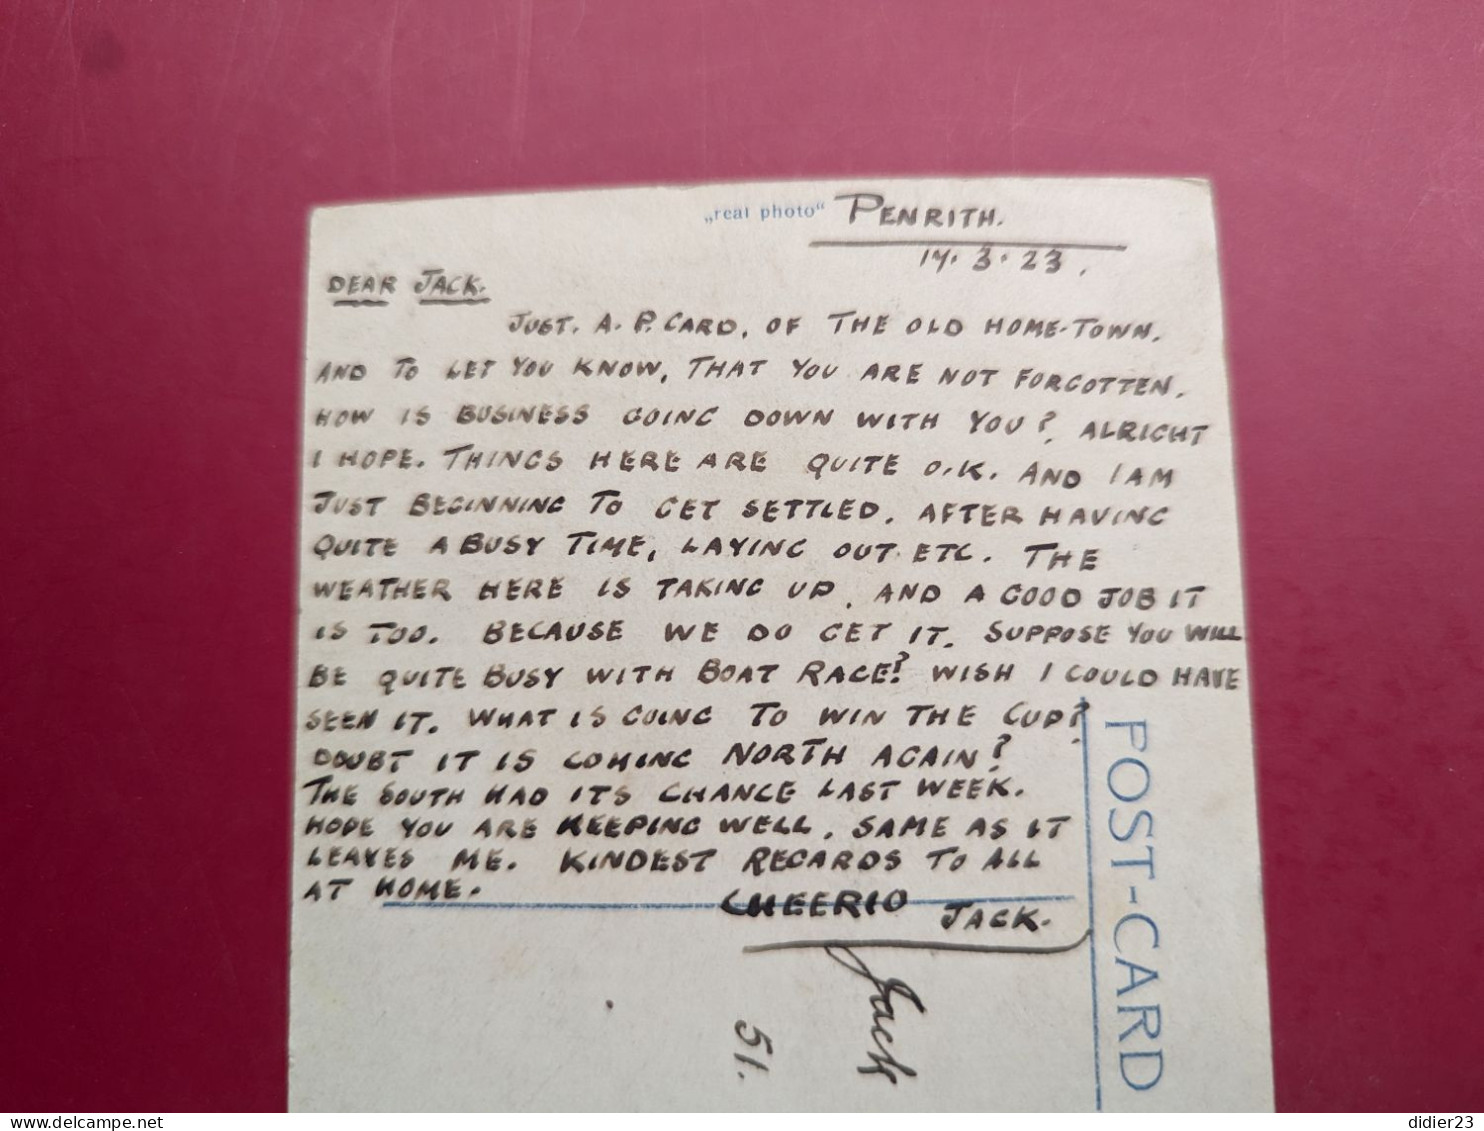 „real photo“ PENRITH.
17.3.23.
DEAR JACK.
JUST. A. P. CARD. OF THE OLD HOME-TOWN.
AND TO LET YOU KNOW, THAT YOU ARE NOT FORGOTTEN.
HOW IS BUSINESS GOING DOWN WITH YOU? ALRIGHT
I HOPE. THINGS HERE ARE QUITE O.K. AND I AM
JUST BEGINNING TO GET SETTLED. AFTER HAVING
QUITE A BUSY TIME, LAYING OUT ETC. THE
WEATHER HERE IS TAKING UP. AND A GOOD JOB IT
IS TOO. BECAUSE WE DO GET IT. SUPPOSE YOU WILL
BE QUITE BUSY WITH BOAT RACE? WISH I COULD HAVE
SEEN IT. WHAT IS GOING TO WIN THE CUP?
DOUBT IT IS COMING NORTH AGAIN?
THE SOUTH HAD ITS CHANCE LAST WEEK.
HOPE YOU ARE KEEPING WELL. SAME AS IT
LEAVES ME. KINDEST REGARDS TO ALL
AT HOME.
CHEERIO JACK.
Jack
51.
POST-CARD
delcampe.net
didier23